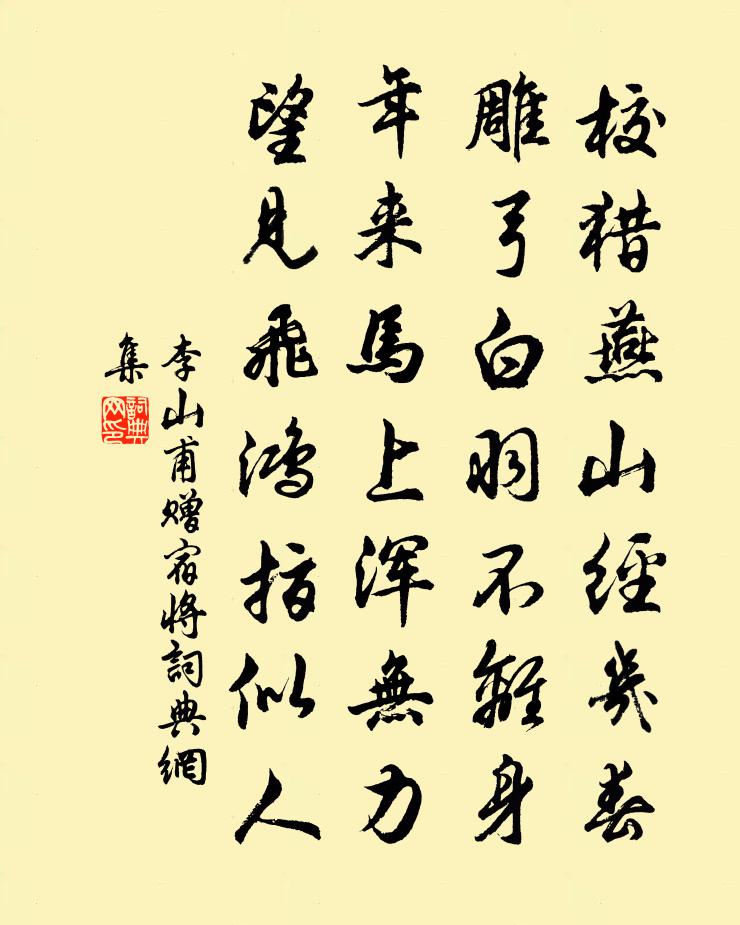 校猎燕山經幾春
雕弓白羽不離身
年来馬上渾無力
望見飛鴻指似人
李山甫贈宿將詞典網
集
詞典
网印